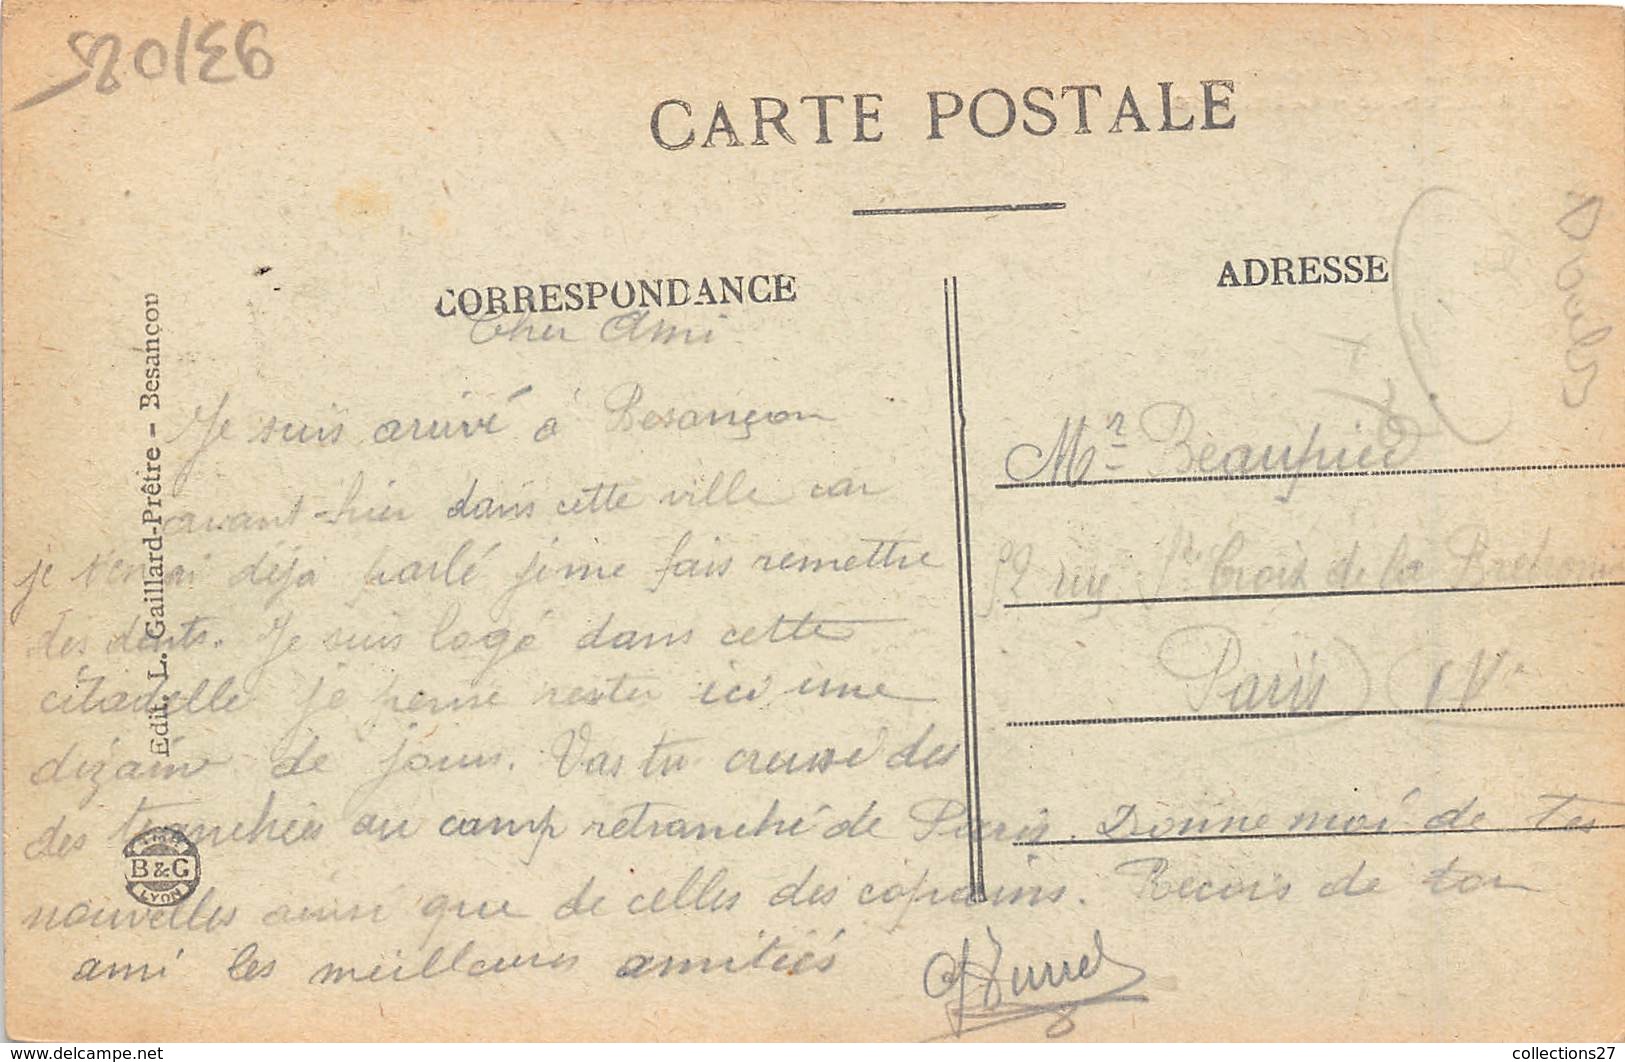 93/02
CARTE POSTALE
CORRESPONDANCE
ADRESSE
Doubs
Edit. L. Gaillard-Prêtre - Besançon
Cher Ami
Je suis arrivé à Besançon
avant-hier dans cette ville car
je t'en ai déjà parlé je me fais remettre
des dents. Je suis logé dans cette
citadelle je pense rester ici une
dizaine de jours. Vas tu creuse des
des tranchées au camp retranché de Paris. Donne moi de tes
nouvelles ainsi que de celles des copains. Recois de ton
ami les meilleures amitiés
Mr Beaupied
52 rue Ste Croix de la Bretonnerie
Paris (IVe
IMP.
B & G
LYON
www.delcampe.net
collections27